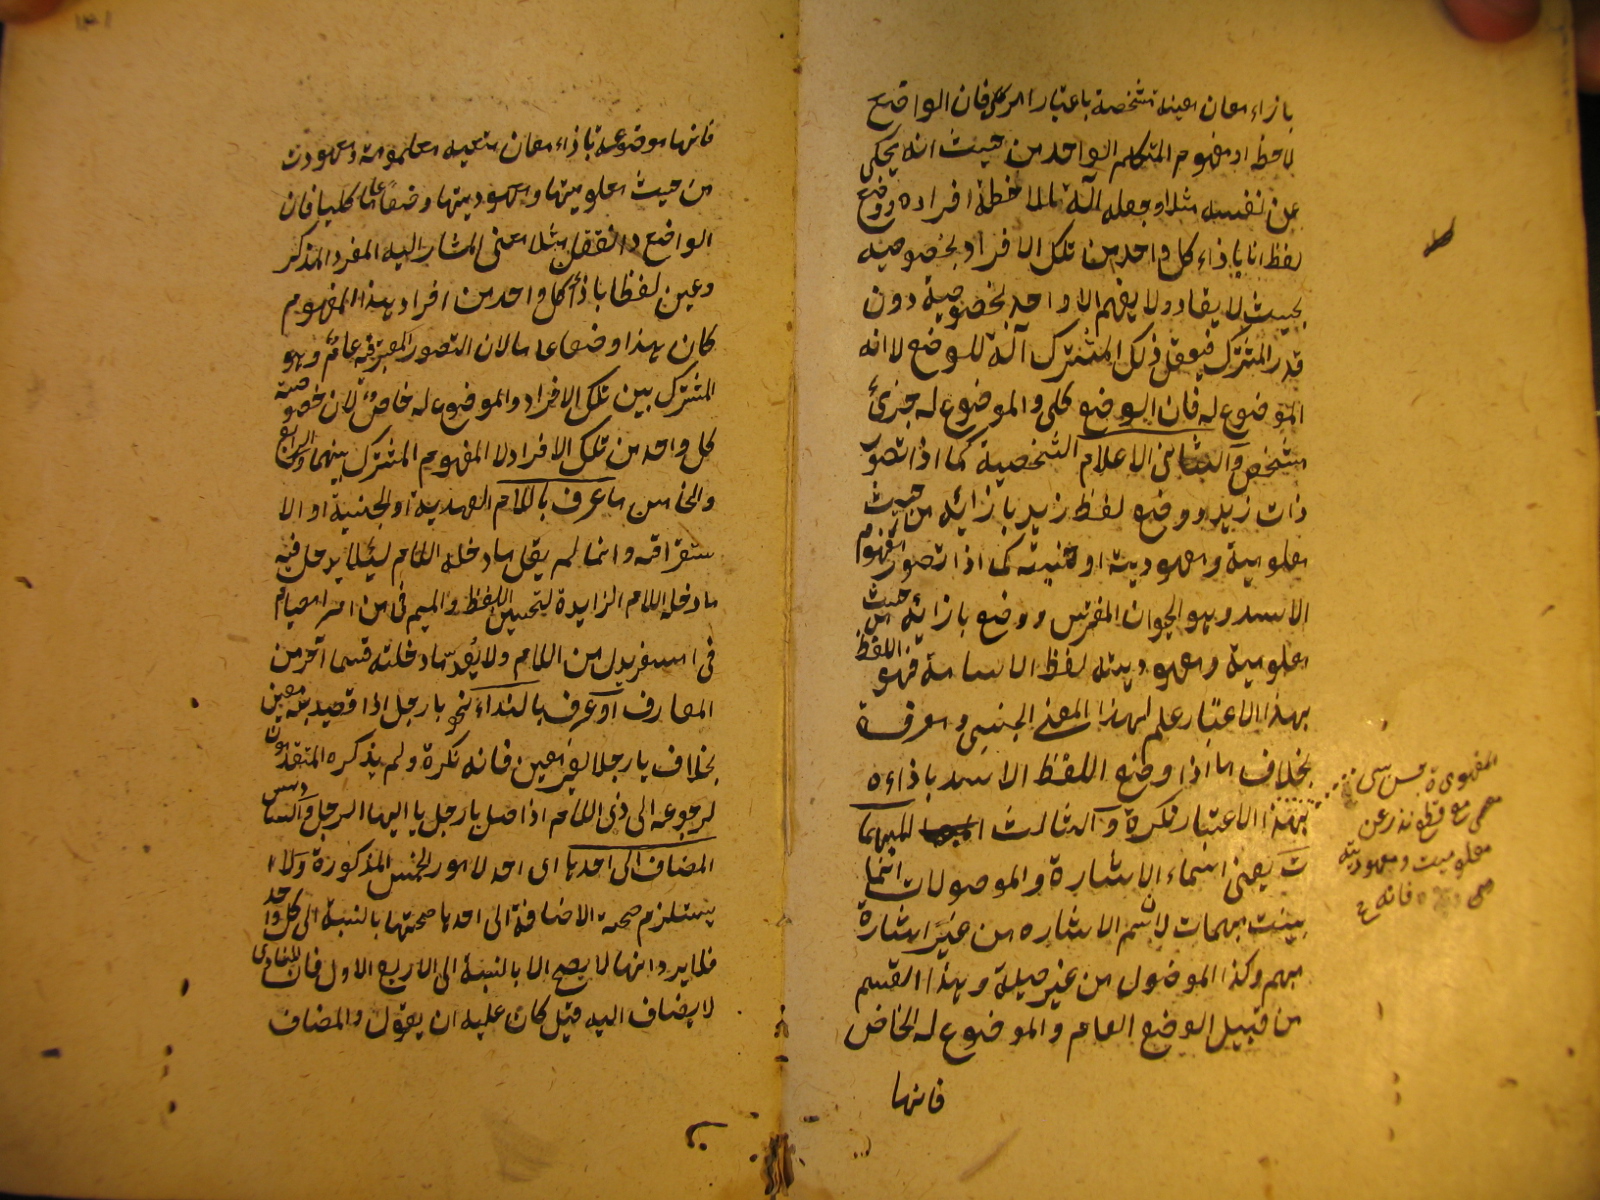 بازاء معان معينة مشخصة باعتبار امر كلي فان الواضع
لاحظ او مفهوم المتكلم الواحد من حيث انه يحكي
عن نفسه مثلا وجعله آلة لملاخطة افراده ووضع
لفظ انا باذاء كل واحد من تلك الافراد بخصوصيه
بحيث لا يقاد ولا يفهم الا واحد بخصوصية دون
قدر المشترك فيعقل ذلك المشترك آلة للوضع لا انه
الموضوع له فان الوضع كلى والموضوع له جزئ
مشخص والثانى الاعلام الشخصية كما اذا تصور
ذات زيد ووضع لفظ زيد بازائه من حيث
معلومية ومعهوديته او جنسية كما اذا تصور مفهوم
الاسد وهو الحيوان المفترس ووضع بازائه من حيث
معلومية ومعهوديته لفظ الاسامة فهو اللفظ
بهذا الاعتبار علم لهذا المعنى الجنسي ومعرفة
بخلاف ما اذا وضع اللفظ الاسد باذاءه
بهذا الاعتبار نكرة والثالث المبهما
ت يعنى اسماء الاشارة والموصولات انما
بينت مبهمات لاسم الاشاره من غير اشارة
مبهم وكذا الموصول من غير صيلة وهذا القسم
من قبيل الوضع العام والموضوع له الخاص
فانها
معلوميت ومعهوديته
فانها موضوعة باذاء معان متعيه معلمومة ومعهودت
من حيث معلوميتها ومعهوديتها وضعا عاما كليا فان
الواضع اذا تعقل مثلا معنى المشار اليه المفرد المذكر
وعين لفظا باذاء كل واحد من افراد هذا المفهوم
كان هذا وضعا عاما لان التصور المعبر فيه عام وهو
المشترك بين تلك الافراد والموضوع له خاص لان خصوصية
كل واحد من تلك الافراد لا المفهوم المشترك بينهما والرابع
والخامس ما عرف باللام العهدية او الجنسية او الا
ستغراقه وانما لم يقل ما دخله اللام ليئلا يدخل فيه
ما دخله اللام الزايدة لتحسين اللفظ والميم فى من امبر امصيام
فى امسفر بدل من اللام ولا يُعد ما دخلته قسما آخر من
المعارف او عرف بالنداء نحو يا رجل اذا قصد به معين
بخلاف يا رجلا لغير معين فانه نكرة ولم يذكره المتقدمون
لرجوعه الى ذى اللام اذ اصل يا رجل يا ايها الرجل والسادس
المضاف الى احدها اى احد لامور الخمس المذكورة ولا
يستلزم صحة الاضافة الى احدها صحتها بالنسبة الى كل واحد
فلا يرد انها لا يصح الا بالنسبة الى الاربع الاول فان المنادى
لا يضاف اليه قيل كان عليه ان يقول والمضاف